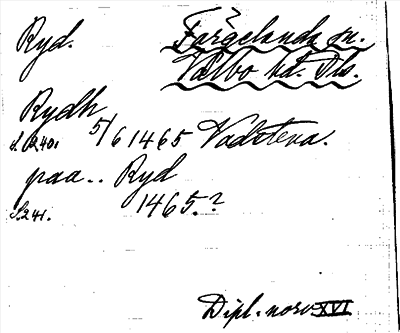 Ryd.
Färgelanda sn.
Valbo hd. Dls.
Rydh
s. 240. 5/6 1465 Vadstena.
paa.. Ryd
S. 241. 1465.?
Dipl. norv. XVI